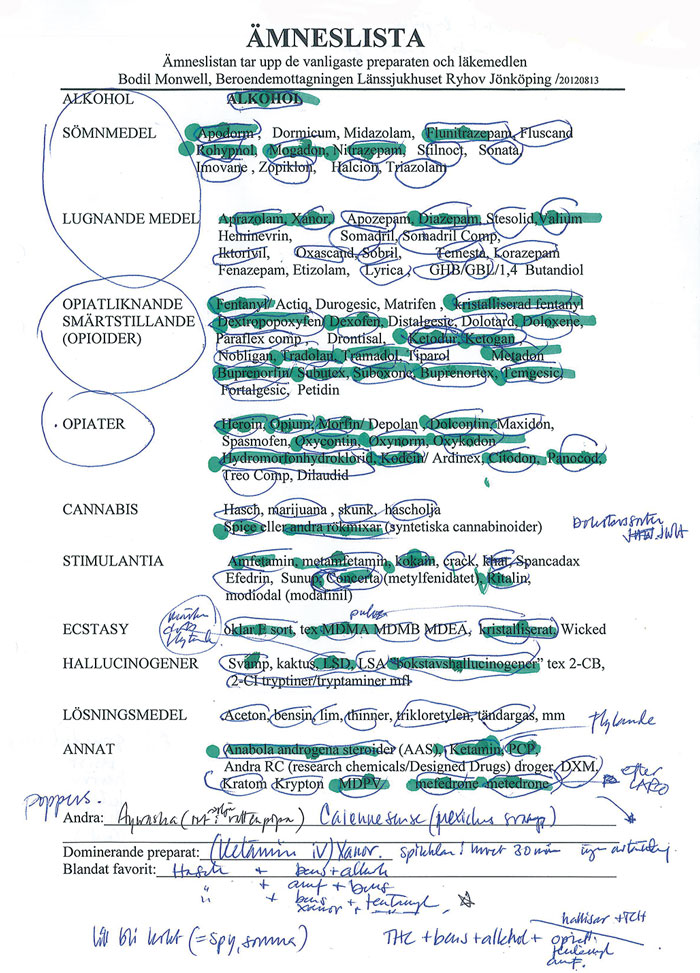 ÄMNESLISTA
Ämneslistan tar upp de vanligaste preparaten och läkemedlen
Bodil Monwell, Beroendemottagningen Länssjukhuset Ryhov Jönköping /20120813
ALKOHOL ALKOHOL
SÖMNMEDEL Apodorm, Dormicum, Midazolam, Flunitrazepam, Fluscand
Rohypnol, Mogadon, Nitrazepam, Stilnoct, Sonata,
Imovane, Zopiklon, Halcion, Triazolam
LUGNANDE MEDEL Aprazolam, Xanor, Apozepam, Diazepam, Stesolid, Valium
Heminevrin, Somadril, Somadril Comp,
Iktorivil, Oxascand, Sobril, Temesta, Korazepam
Fenazepam, Etizolam, Lyrica, GHB/GBL/1,4 Butandiol
OPIATLIKNANDE Fentanyl/ Actiq, Durogesic, Matrifen, kristalliserad fentanyl
SMÄRTSTILLANDE Dextropopoxyfen/ Dexofen, Distalgesic, Dolotard, Doloxene,
(OPIOIDER) Paraflex comp, Drontisal, Ketodur, Ketogan
Nobligan, Tradolan, Tramadol, Tiparol Metadon
Buprenorfin/ Subutex, Suboxone, Buprenortex, Temgesic,
Portalgesic, Petidin
OPIATER Heroin, Opium, Morfin/ Depolan, Dolcontin, Maxidon,
Spasmofen, Oxycontin, Oxynorm, Oxykodon
Hydromorfonhydroklorid, Kodein/ Ardinex, Citodon, Panocod,
Treo Comp, Dilaudid
CANNABIS Hasch, marijuana, skunk, hascholja
Spice eller andra rökmixar (syntetiska cannabinoider)
JWH
STIMULANTIA Amfetamin, metamfetamin, kokain, crack, khat, Spancadax
Efedrin, Sunup, Concerta (metylfenidatet), Ritalin,
modiodal (modafinil)
pulver
ECSTASY oklar E sort, tex MDMA MDMB MDEA, kristalliserat, Wicked
HALLUCINOGENER Svamp, kaktus, LSD, LSA "bokstavshallucinogener" tex 2-CB,
2-CI tryptiner/tryptaminer mfl
LÖSNINGSMEDEL Aceton, bensin, lim, thinner, trikloretylen, tändargas, mm
flytande
ANNAT Anabola androgena steroider (AAS), Ketamin, PCP,
Andra RC (research chemicals/Designed Drugs) droger, DXM,
Kratom Krypton MDPV mefedrone metedrone
efter
poppers.
Andra:
Dominerande preparat: (Ketamin iv) Xanor.
Blandat favorit: Hasch + bens + alkoh
" + amf + bens
" + bens +
xanor + fentanyl
THC + bens + alkohol + opiat
fentanyl
amf.